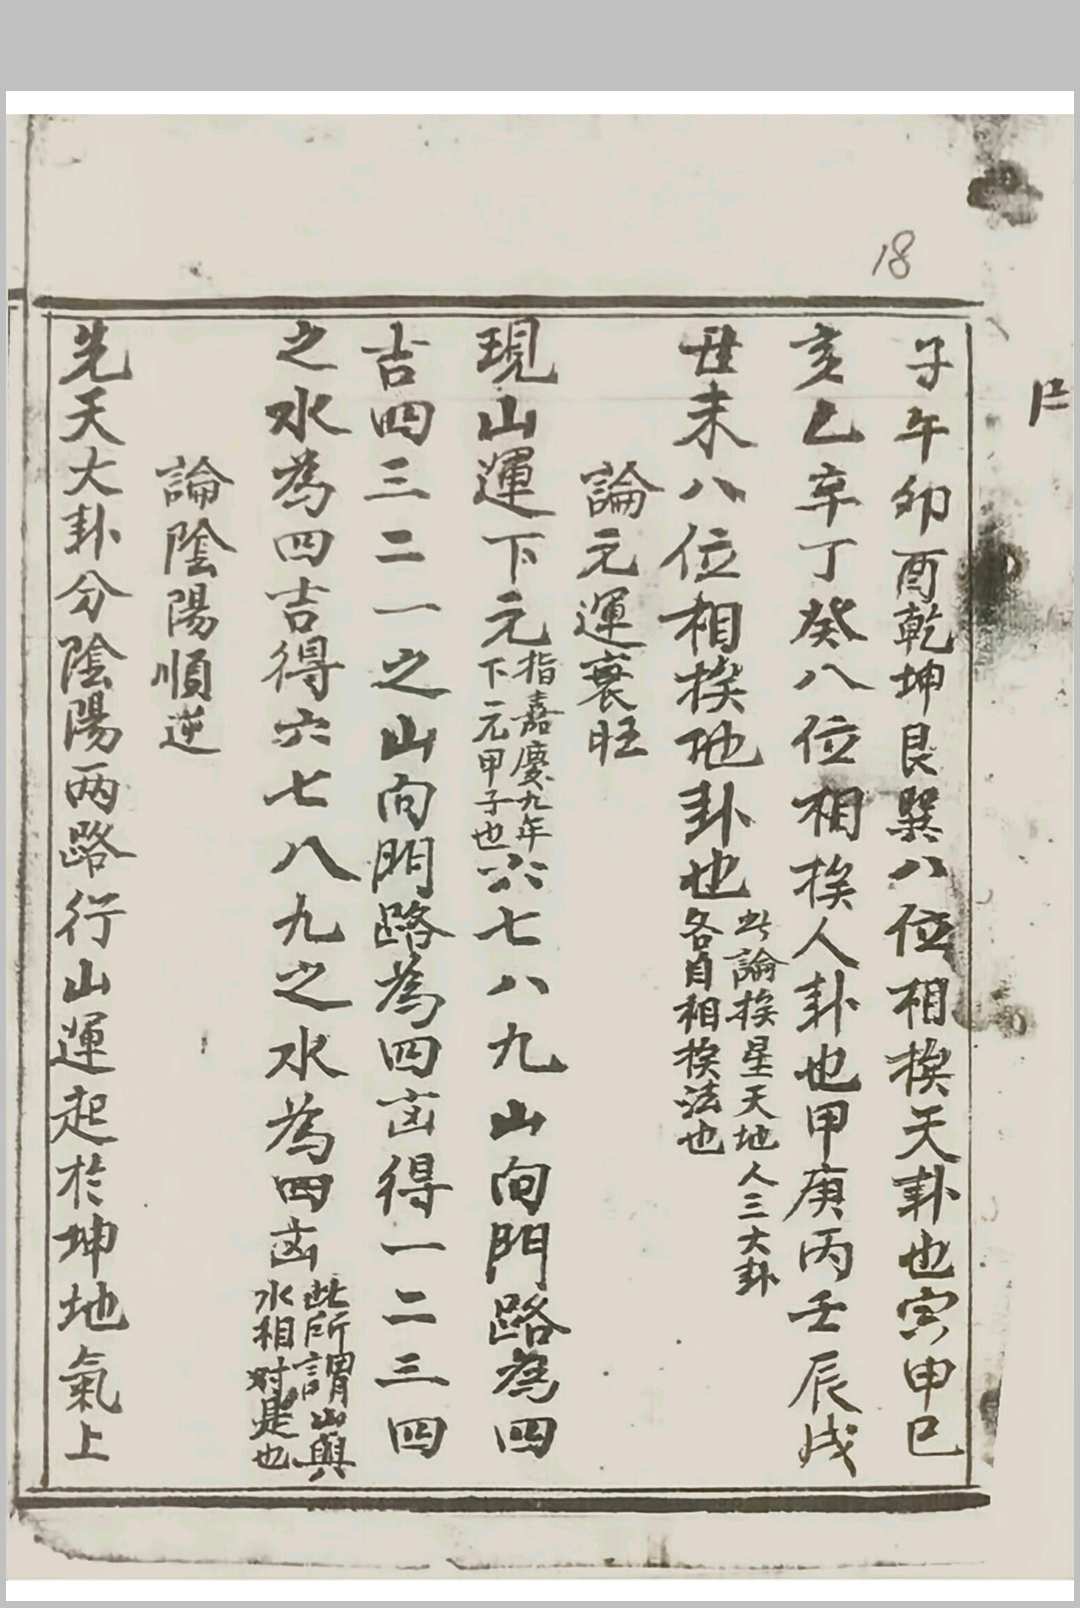 18
子午卯酉乾坤艮巽八位相挨天卦也寅申巳
亥乙辛丁癸八位相挨人卦也甲庚丙壬辰戌
丑未八位相挨地卦也此論挨星天地人三大卦各自相挨法也
論元運衰旺
現山運下元指嘉慶九年下元甲子也六七八九山向門路為四
吉四三二一之山向門路為四凶得一二三四
之水為四吉得六七八九之水為四凶此所謂山與水相对是也
論陰陽順逆
先天大卦分陰陽两路行山運起於坤地氣上